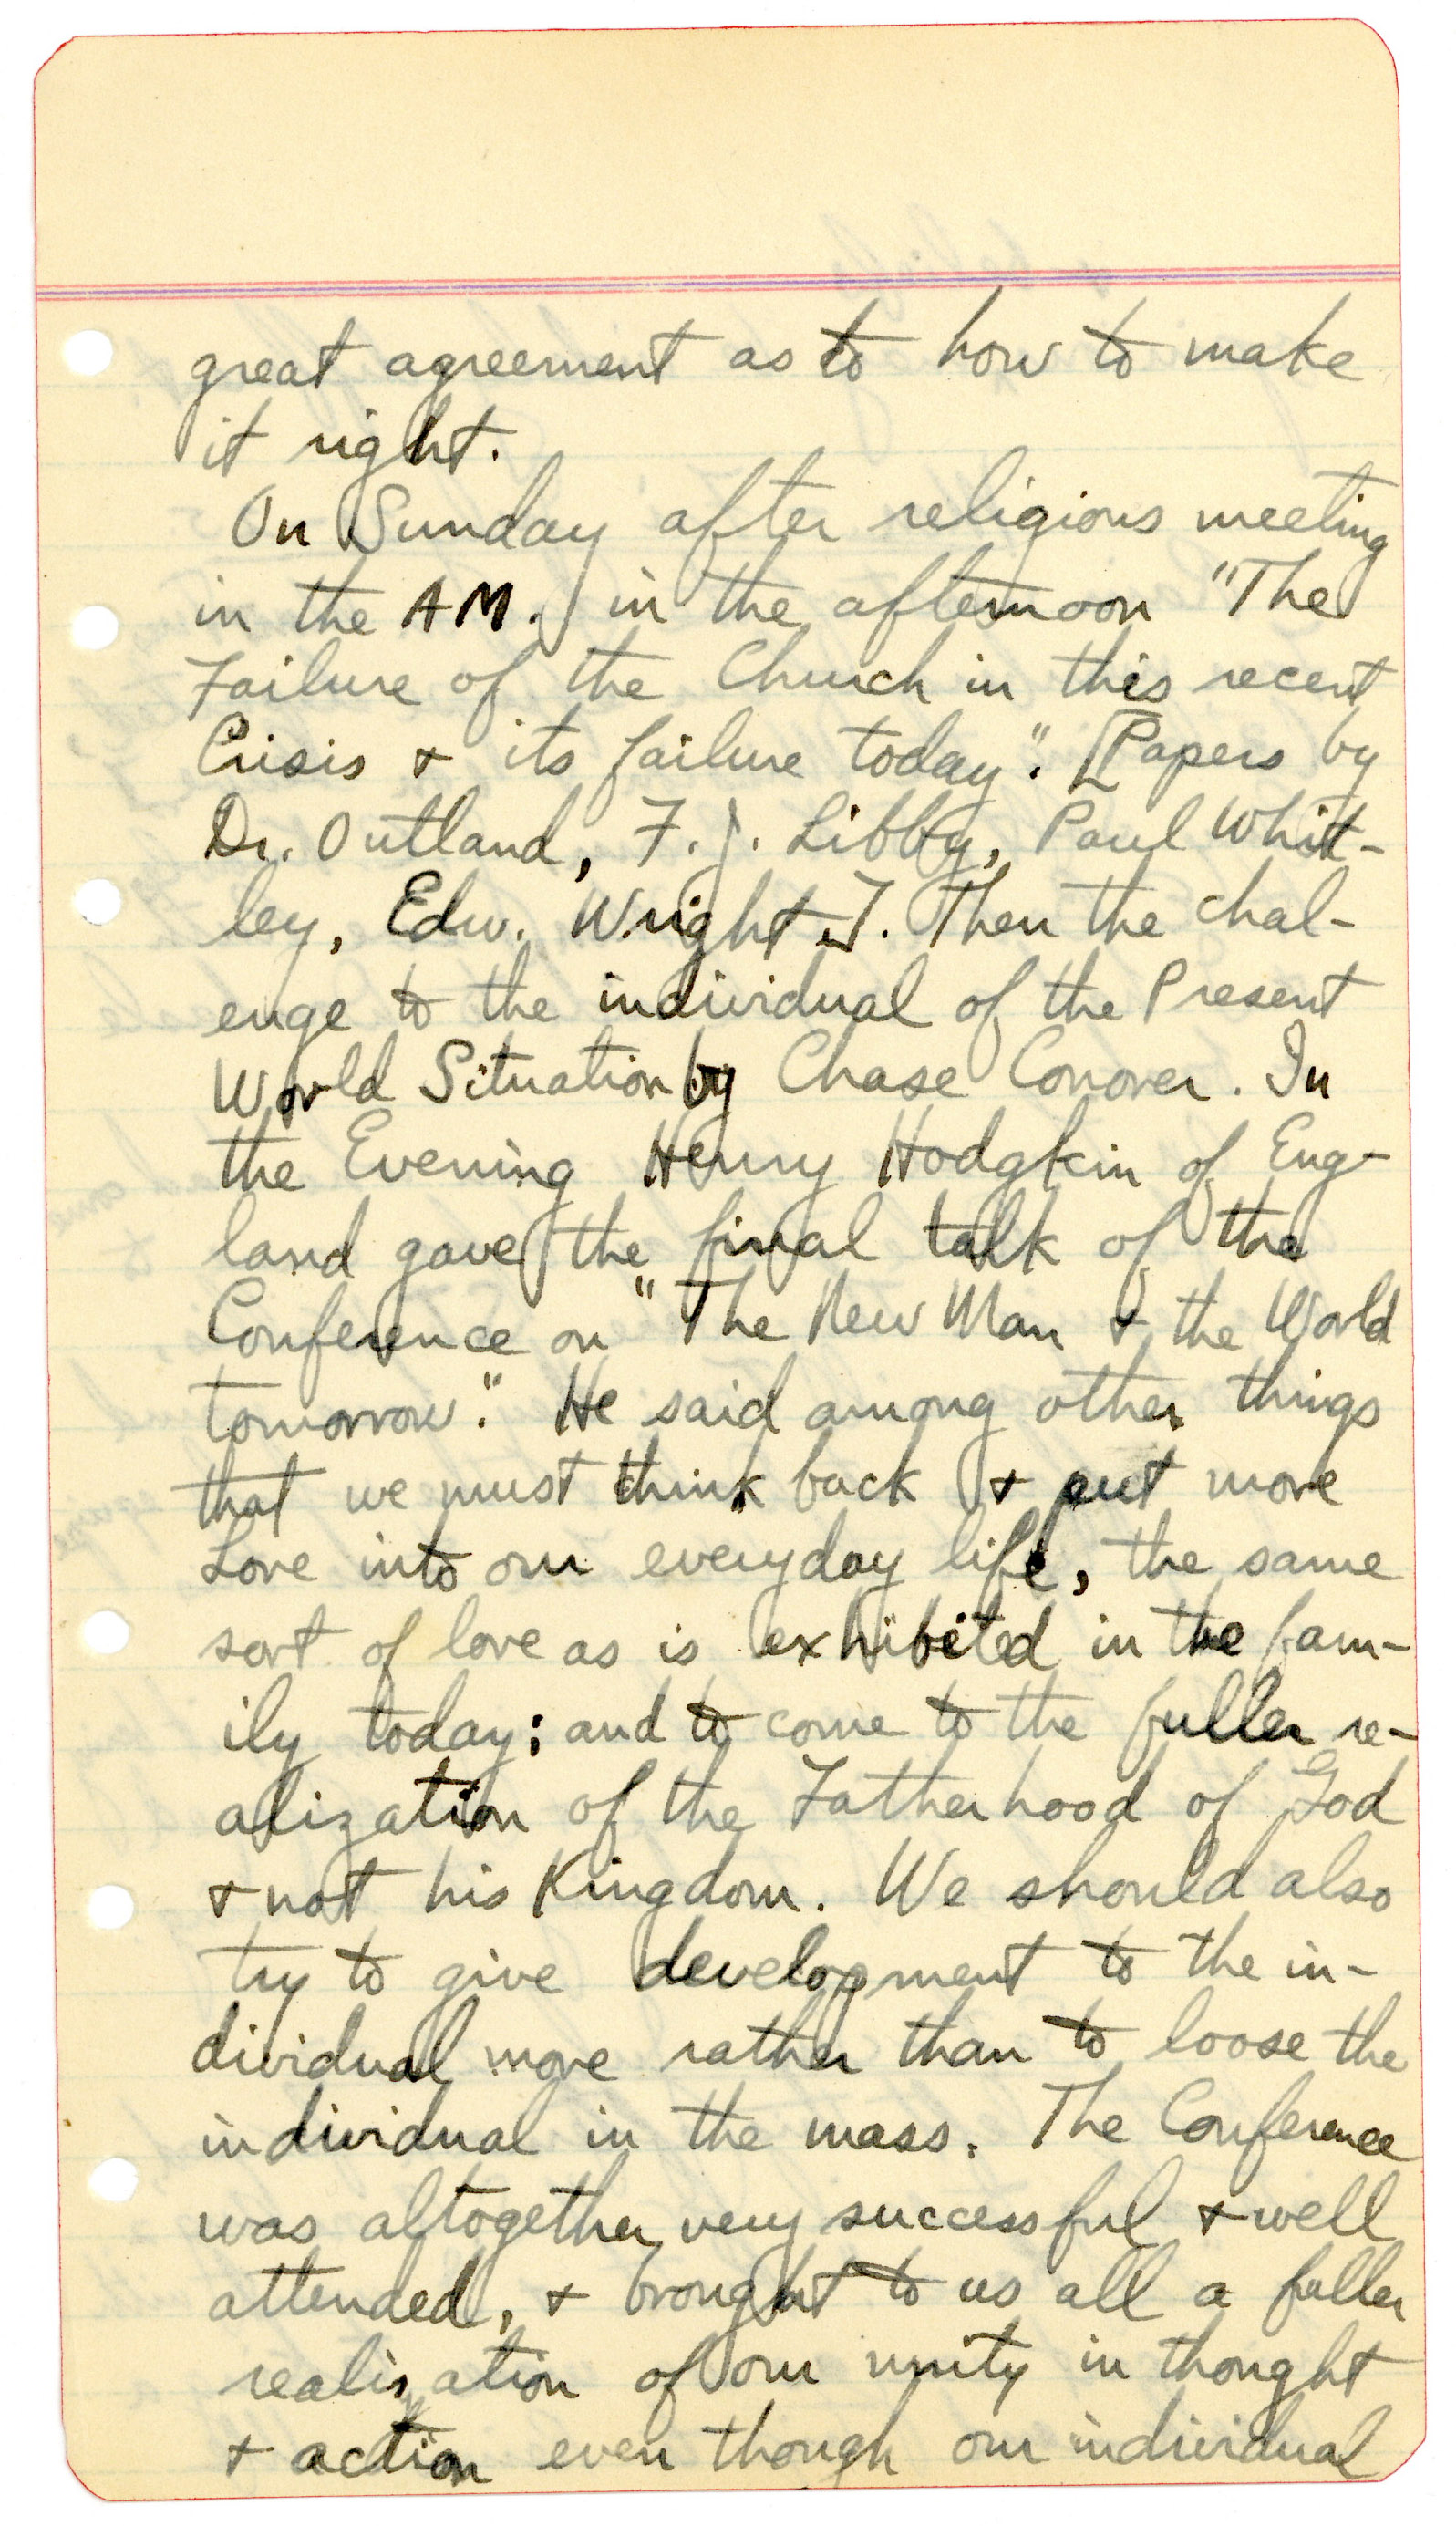 great agreement as to how to make
it right.
On Sunday after religious meeting
in the AM. in the afternoon "The
Failure of the Church in this recent
Crisis & its failure today". [Papers by
Dr. Outland, F. J. Libby, Paul Whit-
ley, Edw. Wright]. Then the chal-
enge to the individual of the Present
World Situation by Chase Conover. In
the Evening Henry Hodgkin of Eng-
land gave the final talk of the
Conference on "The New Man & the World
tomorrow". He said among other things
that we must think back & put more
Love into our everyday life, the same
sort of love as is exhibited in the fam-
ily today; and to come to the fuller re-
alization of the Fatherhood of God
& not his Kingdom. We should also
try to give development to the in-
dividual more rather than to loose the
individual in the mass. The Conference
was altogether very successful & well
attended, & brought to us all a fuller
realization of our unity in thought
& action even though our individual